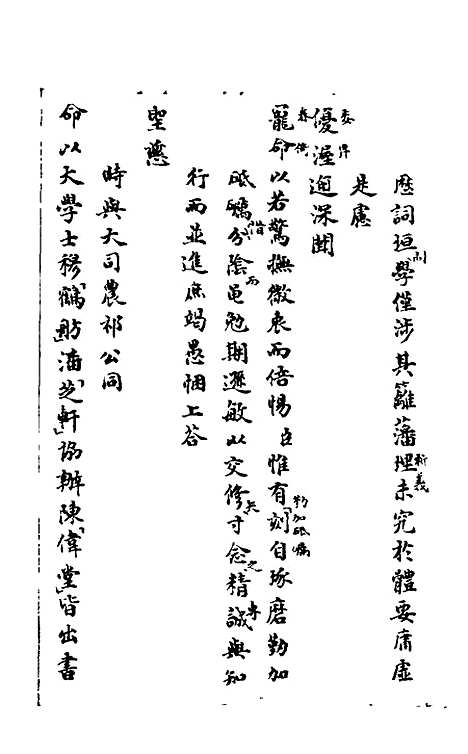 歷詞垣學僅涉其籬藩理未究於體要庸虛
是慮
優渥迺深聞
寵命以若驚撫微衷而倍惕臣惟有刻自琢磨勤加
砥礪分陰黽勉期遜敏以交修寸念精誠與知
行而並進庶竭愚悃上荅
聖慈
時與大司農祁公同
命以大學士穆鶴舫潘芝軒協辦陳偉堂皆出書